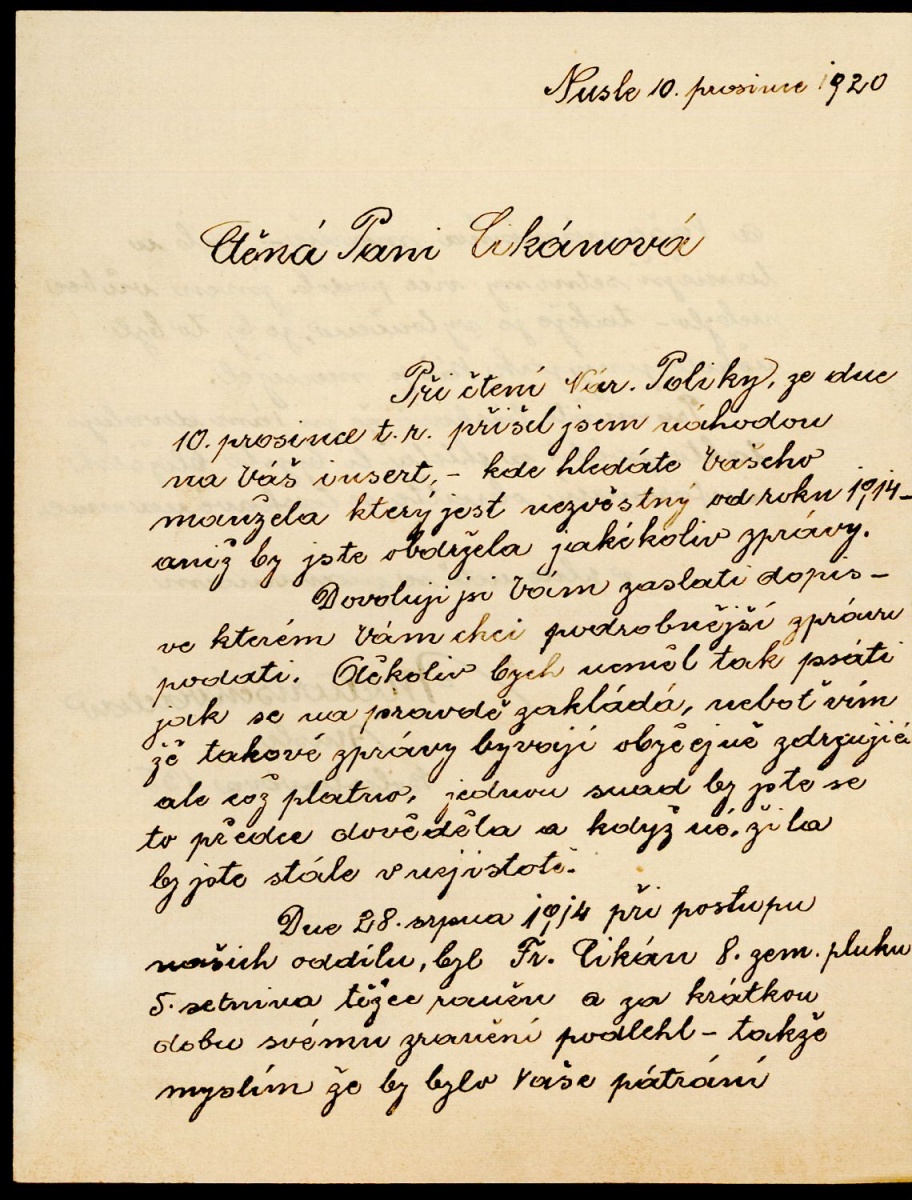 Nusle 10. prosince 1920
Ctěná Pani Cikánová
Při čtení Nár. Politiky, ze dne
10. prosince t. r. přišel jsem náhodou
na Váš insert, – kde hledáte Vašeho
manžela který jest nezvěstný od roku 1914 –
aniž by jste obdržela jakékoliv zprávy.
Dovoluji jsi Vám zaslati dopis –
ve kterém Vám chci podrobnější zprávu
podati. Ačkoliv bych neměl tak psáti
jak se na pravdě zakládá, neboť vím
že takové zprávy bývají obyčejně zdrcující
ale což platno, jednou snad by jste se
to předce dověděla a když né, žila
by jste stále v nejistotě.
Dne 28. srpna 1914 při postupu
našich oddílu, byl Fr. Cikán 8. zem. pluku
5. setnina těžce raněn a za krátkou
dobu svému zranění podlehl – takže
myslím že by bylo Vaše pátrání